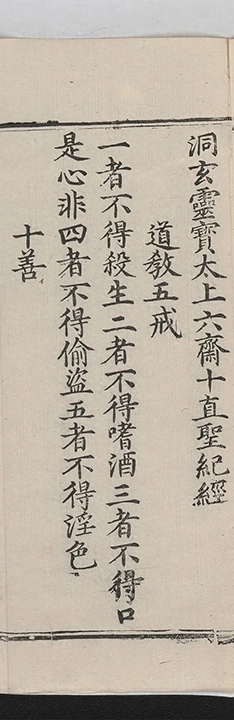 洞玄靈寶太上六齋十直聖紀經
道教五戒
一者不得殺生二者不得嗜酒三者不得口
是心非四者不得偷盜五者不得淫色
十善